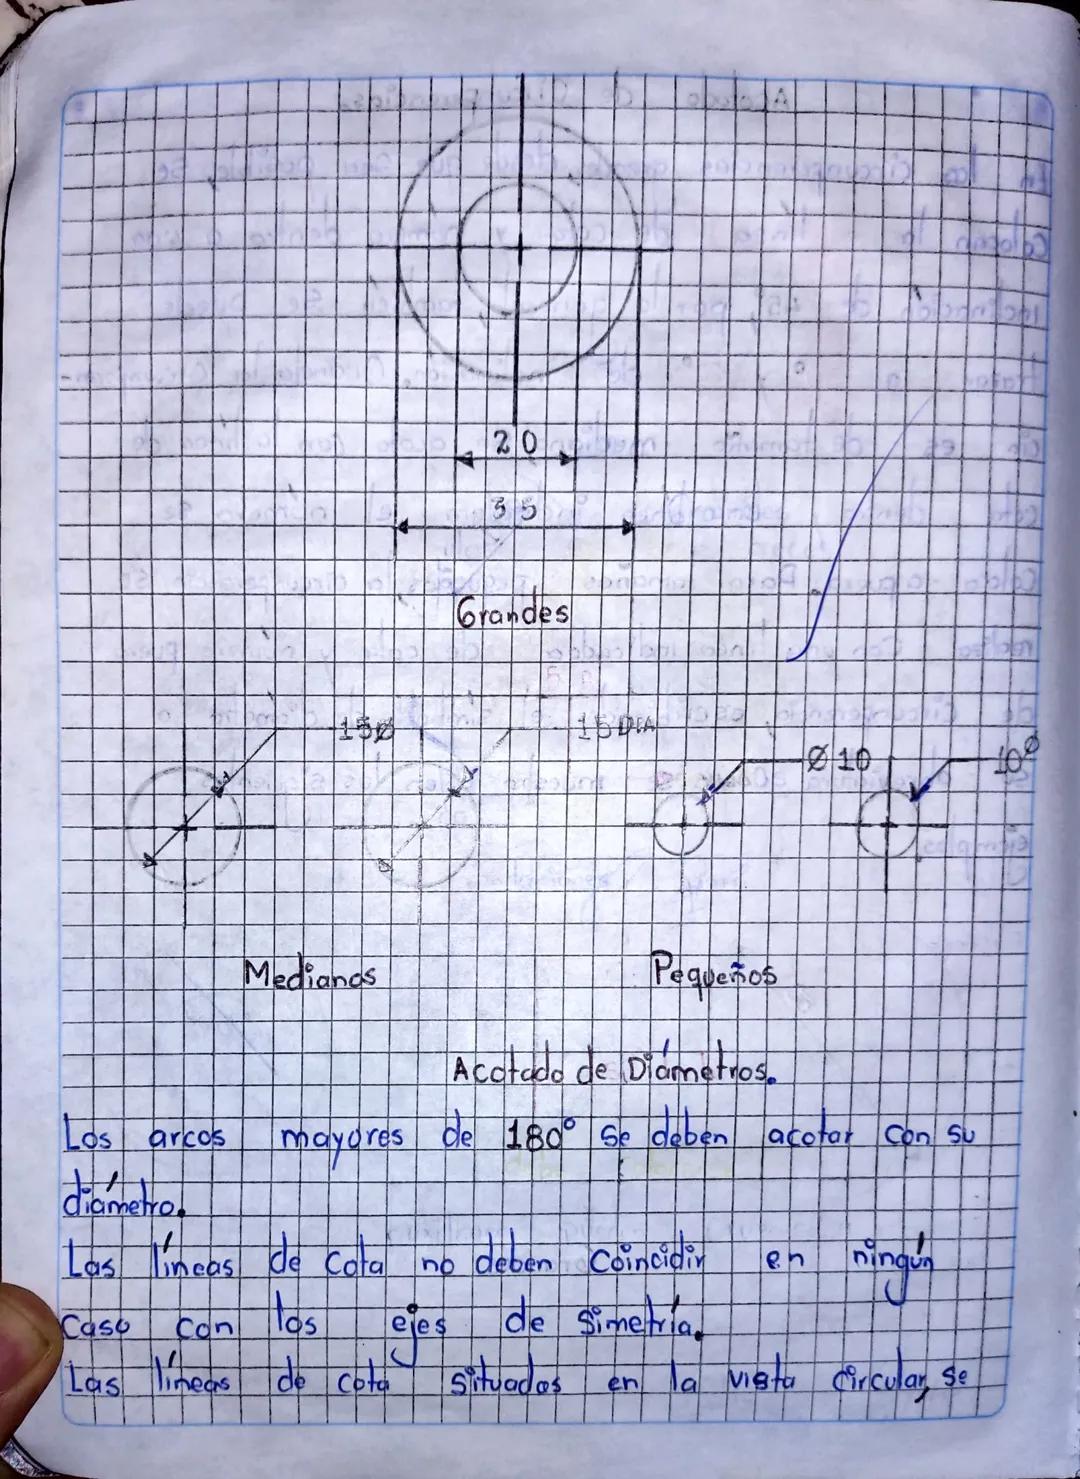 20
35
Grandes
15Ø
15DIA
Ø10
10Ø
Medianos
Pequeños
Acotado de Diámetros.
Los arcos mayores de 180° se deben acotar con su
diámetro.
Las líneas de cota no deben coincidir en ningún
caso con los ejes de simetría.
Las líneas de cota situadas en la vista circular, se